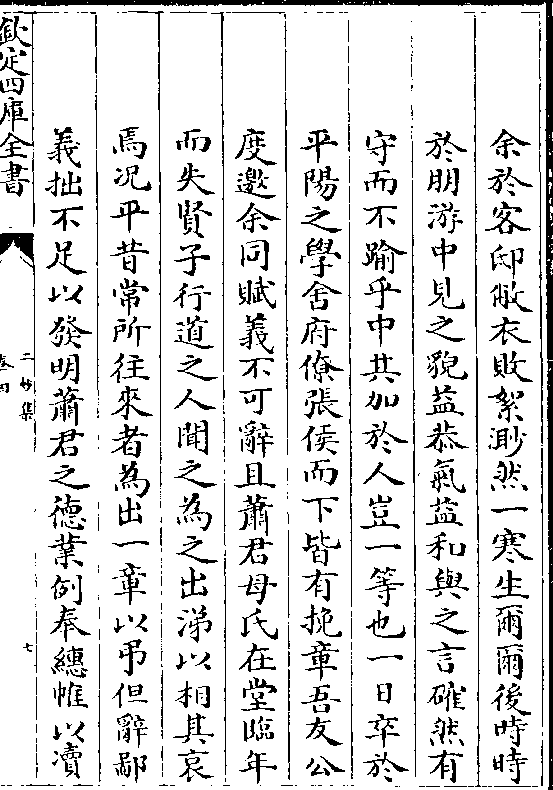 余於客邸敝衣敗絮渺然一寒生爾爾後時時
於朋游中見之貌益恭氣益和與之言確然有
守而不踰乎中其加於人豈一等也一日卒於
平陽之學舍府僚張侯而下皆有挽章吾友公
度邀余同賦義不可辭且蕭君母氏在堂臨年
而失賢子行道之人聞之為之出涕以相其哀
焉况平昔常所往來者為出一章以弔但辭鄙
義拙不足以發明蕭君之德業例奉繐帷以瀆
欽定四庫全書
二妙集
卷四
七